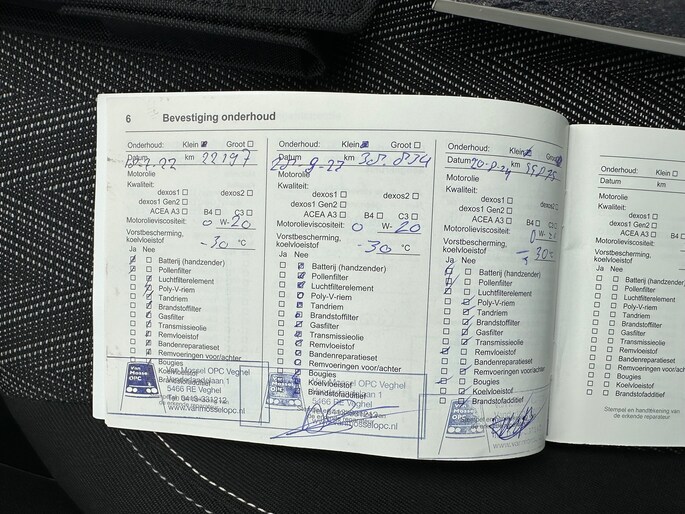 6 Bevestiging onderhoud
Onderhoud: Klein Groot
Datum km 22197
Motorolie
Kwaliteit:
dexos1 dexos2
dexos1 Gen2
ACEA A3 B4 C3
Motorolieviscositeit: 0 W- 20
Vorstbescherming, koelvloeistof -30 °C
Ja Nee
Batterij (handzender)
Pollenfilter
Luchtfilterelement
Poly-V-riem
Tandriem
Brandstoffilter
Gasfilter
Transmissieolie
Remvloeistof
Bandenreparatieset
Remvoeringen voor/achter
Bougies
Koelvloeistof
Van Mossel OPC
Van Mossel OPC Veghel
5466 RE Veghel
Tel. 0413-331212
www.vanmosselopc.nl
Onderhoud: Klein Groot
Datum km
Motorolie
Kwaliteit:
dexos1 dexos2
dexos1 Gen2
ACEA A3 B4 C3
Motorolieviscositeit: 0 W- 20
Vorstbescherming, koelvloeistof -30 °C
Ja Nee
Batterij (handzender)
Pollenfilter
Luchtfilterelement
Poly-V-riem
Tandriem
Brandstoffilter
Gasfilter
Transmissieolie
Remvloeistof
Bandenreparatieset
Remvoeringen voor/achter
Bougies
Koelvloeistof
Brandstofadditief
OPC Veghel
5466 RE Veghel
www.vanmosselopc.nl
Onderhoud: Klein Groot
Datum km
Motorolie
Kwaliteit:
dexos1 dexos2
dexos1 Gen2
ACEA A3 B4 C3
Motorolieviscositeit: 0 W-
Vorstbescherming, koelvloeistof 30 °C
Ja Nee
Batterij (handzender)
Pollenfilter
Luchtfilterelement
Poly-V-riem
Tandriem
Brandstoffilter
Gasfilter
Transmissieolie
Remvloeistof
Bandenreparatieset
Remvoeringen voor/achter
Bougies
Koelvloeistof
Brandstofadditief
Van Mossel OPC
Onderhoud: Klein
Datum km
Motorolie
Kwaliteit:
dexos1
dexos1 Gen2
ACEA A3 B4
Motorolieviscositeit:
Vorstbescherming, koelvloeistof
Ja Nee
Batterij (handzender)
Pollenfilter
Luchtfilterelement
Poly-V-riem
Tandriem
Brandstoffilter
Gasfilter
Transmissieolie
Remvloeistof
Bandenreparatieset
Remvoeringen voor/achter
Bougies
Koelvloeistof
Brandstofadditief
Stempel en handtekening van
de erkende reparateur